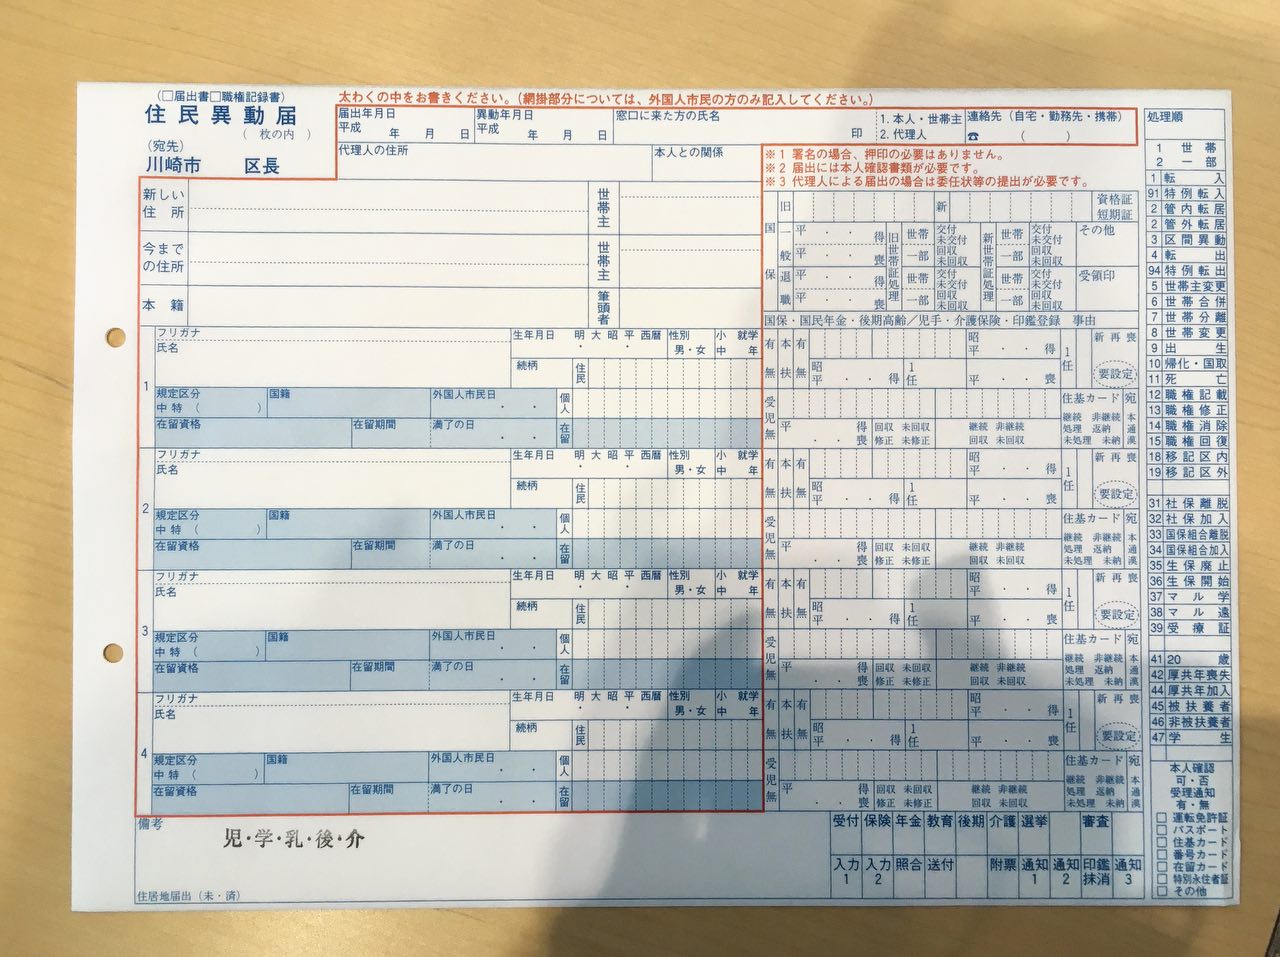 (□届出書□職権記録書)
住民異動届
( 枚の内 )
(宛先)
川崎市 区長
太わくの中をお書きください。(網掛部分については、外国人市民の方のみ記入してください。)
届出年月日 異動年月日 窓口に来た方の氏名 1. 本人・世帯主 連絡先(自宅・勤務先・携帯)
平成 年 月 日 平成 年 月 日 印 2. 代理人 ☎ ( )
代理人の住所 本人との関係
※1 署名の場合、押印の必要はありません。
※2 届出には本人確認書類が必要です。
※3 代理人による届出の場合は委任状等の提出が必要です。
新しい住所 世帯主
今までの住所 世帯主
本籍 筆頭者
国保 旧 新 資格証 短期証
一般 平 ・ ・ 得 旧世帯証処理 世帯 交付 未交付 新世帯証処理 世帯 交付 未交付 その他
平 ・ ・ 喪 一部 回収 未回収 一部 回収 未回収
退職 平 ・ ・ 得 世帯 交付 未交付 世帯 交付 未交付 受領印
平 ・ ・ 喪 一部 回収 未回収 一部 回収 未回収
国保・国民年金・後期高齢/児手・介護保険・印鑑登録 事由
1
フリガナ 生年月日 明 大 昭 平 西暦 性別 小 就学
氏名 ・ ・ 男・女 中 年
続柄 住民
規定区分 国籍 外国人市民日 個人
中 特 ( ) ・ ・
在留資格 在留期間 満了の日 在留
・ ・
有 本 有 昭 平 ・ ・ 得 1 任 新 再 喪
無 扶 無 昭 平 ・ ・ 得 1 任 平 ・ ・ 喪 要設定
受 児 無 住基カード 宛
平 得 回収 未回収 継続 非継続 継続 非継続 本
・ ・ 喪 修正 未修正 回収 未回収 処理 返納 通
未処理 未納 漢
2
フリガナ 生年月日 明 大 昭 平 西暦 性別 小 就学
氏名 ・ ・ 男・女 中 年
続柄 住民
規定区分 国籍 外国人市民日 個人
中 特 ( ) ・ ・
在留資格 在留期間 満了の日 在留
・ ・
有 本 有 昭 平 ・ ・ 得 1 任 新 再 喪
無 扶 無 昭 平 ・ ・ 得 1 任 平 ・ ・ 喪 要設定
受 児 無 住基カード 宛
平 得 回収 未回収 継続 非継続 継続 非継続 本
・ ・ 喪 修正 未修正 回収 未回収 処理 返納 通
未処理 未納 漢
3
フリガナ 生年月日 明 大 昭 平 西暦 性別 小 就学
氏名 ・ ・ 男・女 中 年
続柄 住民
規定区分 国籍 外国人市民日 個人
中 特 ( ) ・ ・
在留資格 在留期間 満了の日 在留
・ ・
有 本 有 昭 平 ・ ・ 得 1 任 新 再 喪
無 扶 無 昭 平 ・ ・ 得 1 任 平 ・ ・ 喪 要設定
受 児 無 住基カード 宛
平 得 回収 未回収 継続 非継続 継続 非継続 本
・ ・ 喪 修正 未修正 回収 未回収 処理 返納 通
未処理 未納 漢
4
フリガナ 生年月日 明 大 昭 平 西暦 性別 小 就学
氏名 ・ ・ 男・女 中 年
続柄 住民
規定区分 国籍 外国人市民日 個人
中 特 ( ) ・ ・
在留資格 在留期間 満了の日 在留
・ ・
有 本 有 昭 平 ・ ・ 得 1 任 新 再 喪
無 扶 無 昭 平 ・ ・ 得 1 任 平 ・ ・ 喪 要設定
受 児 無 住基カード 宛
平 得 回収 未回収 継続 非継続 継続 非継続 本
・ ・ 喪 修正 未修正 回収 未回収 処理 返納 通
未処理 未納 漢
備考
児・学・乳・後・介
住居地届出(未・済)
受付 保険 年金 教育 後期 介護 選挙 審査
入力1 入力2 照合 送付 附票 通知1 通知2 印鑑抹消 通知3
処理順
1 世帯
2 一部
1 転入
91 特例転入
2 管内転居
2 管外転居
3 区間異動
4 転出
94 特例転出
5 世帯主変更
6 世帯合併
7 世帯分離
8 世帯変更
9 出生
10 帰化・国取
11 死亡
12 職権記載
13 職権修正
14 職権消除
15 職権回復
18 移記区内
19 移記区外
31 社保離脱
32 社保加入
33 国保組合離脱
34 国保組合加入
35 生保廃止
36 生保開始
37 マル学
38 マル遠
39 受療証
41 20歳
42 厚共年喪失
44 厚共年加入
45 被扶養者
46 非被扶養者
47 学生
本人確認
可・否
受理通知
有・無
□ 運転免許証
□ パスポート
□ 住基カード
□ 番号カード
□ 在留カード
□ 特別永住者証
□ その他